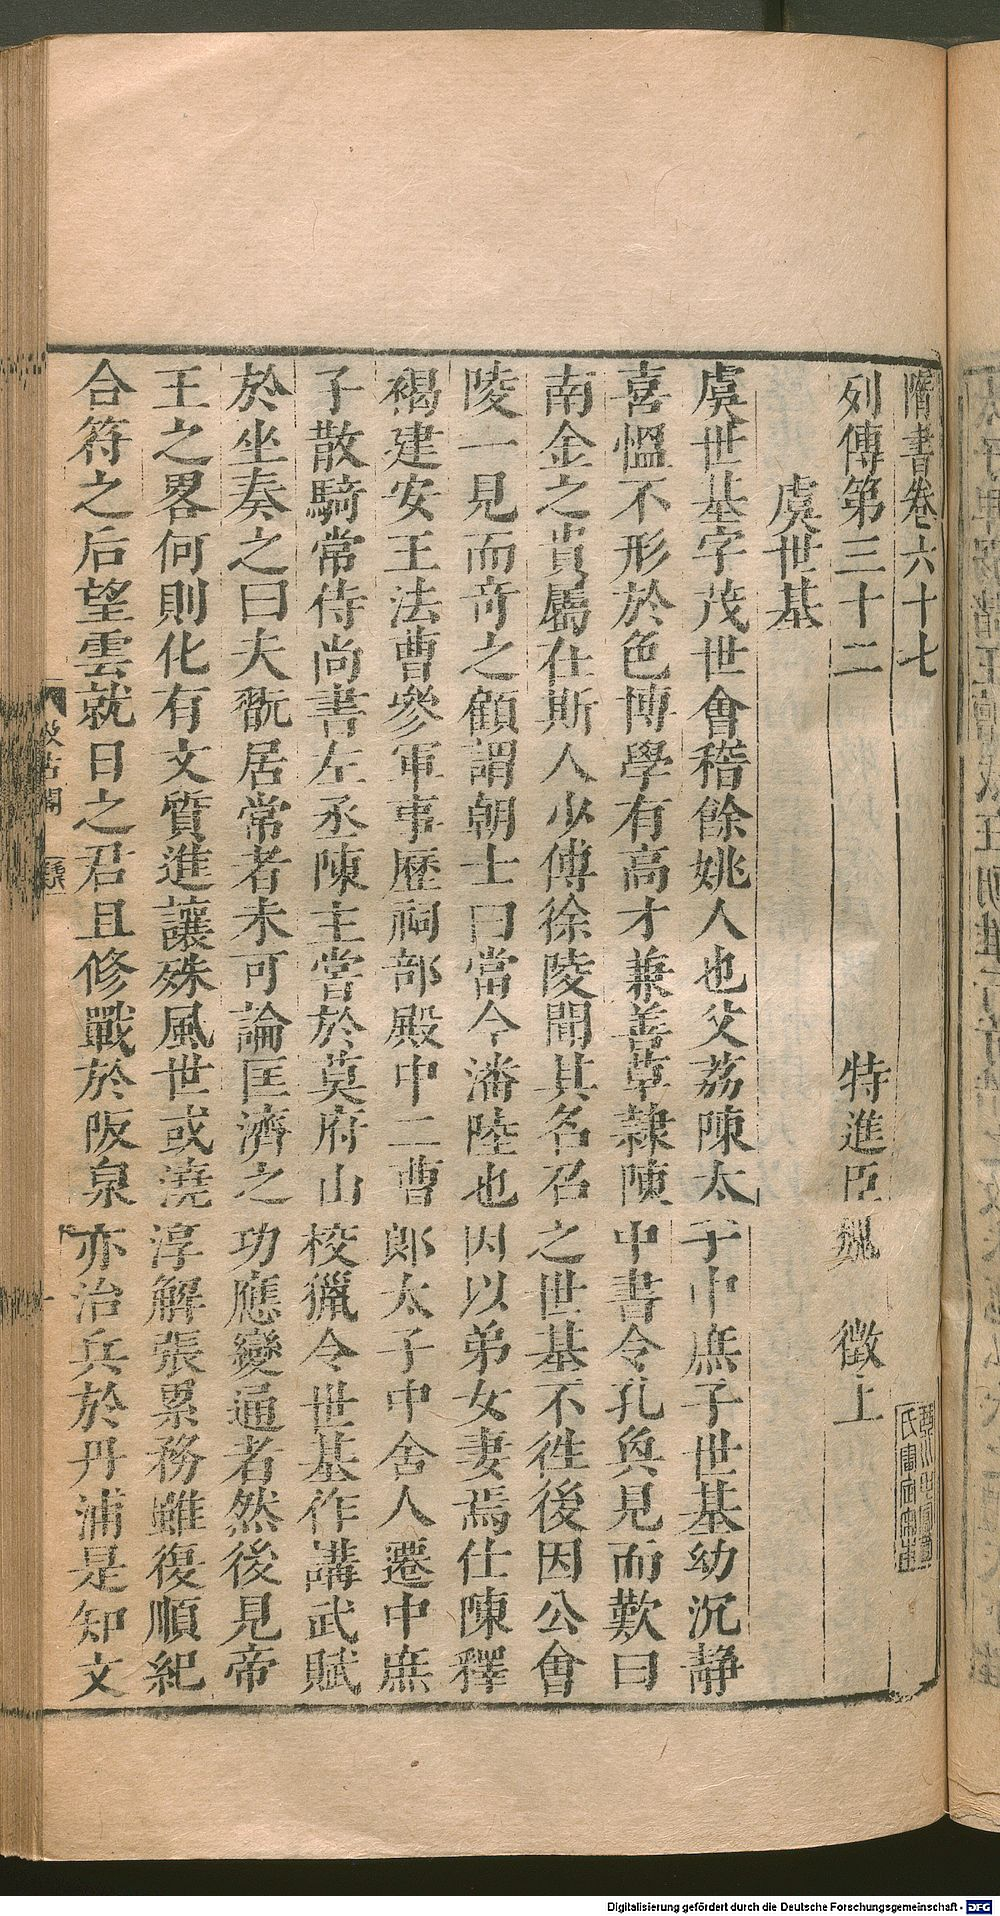 隋書卷六十七
列傳第三十二　特進臣魏　徵上
虞世基
虞世基字茂世會稽餘姚人也父荔陳太子中庶子世基幼沉靜
喜慍不形於色博學有高才兼善草隷陳中書令孔奐見而歎曰
南金之貴屬在斯人少傅徐陵聞其名召之世基不徃後因公會
陵一見而竒之顧謂朝士曰當今潘陸也因以弟女妻焉仕陳釋
褐建安王法曹參軍事歷祠部殿中二曹郎太子中舍人遷中庶
子散騎常侍尚書左丞陳主嘗於莫府山校獵令世基作講武賦
於坐奏之曰夫翫居常者未可論匡濟之功應變通者然後見帝
王之畧何則化有文質進讓殊風世或澆淳解張累務雖復順紀
合符之后望雲就日之君且修戰於阪泉亦治兵於丹浦是知文
汲古閣
Digitalisierung gefördert durch die Deutsche Forschungsgemeinschaft - DFG